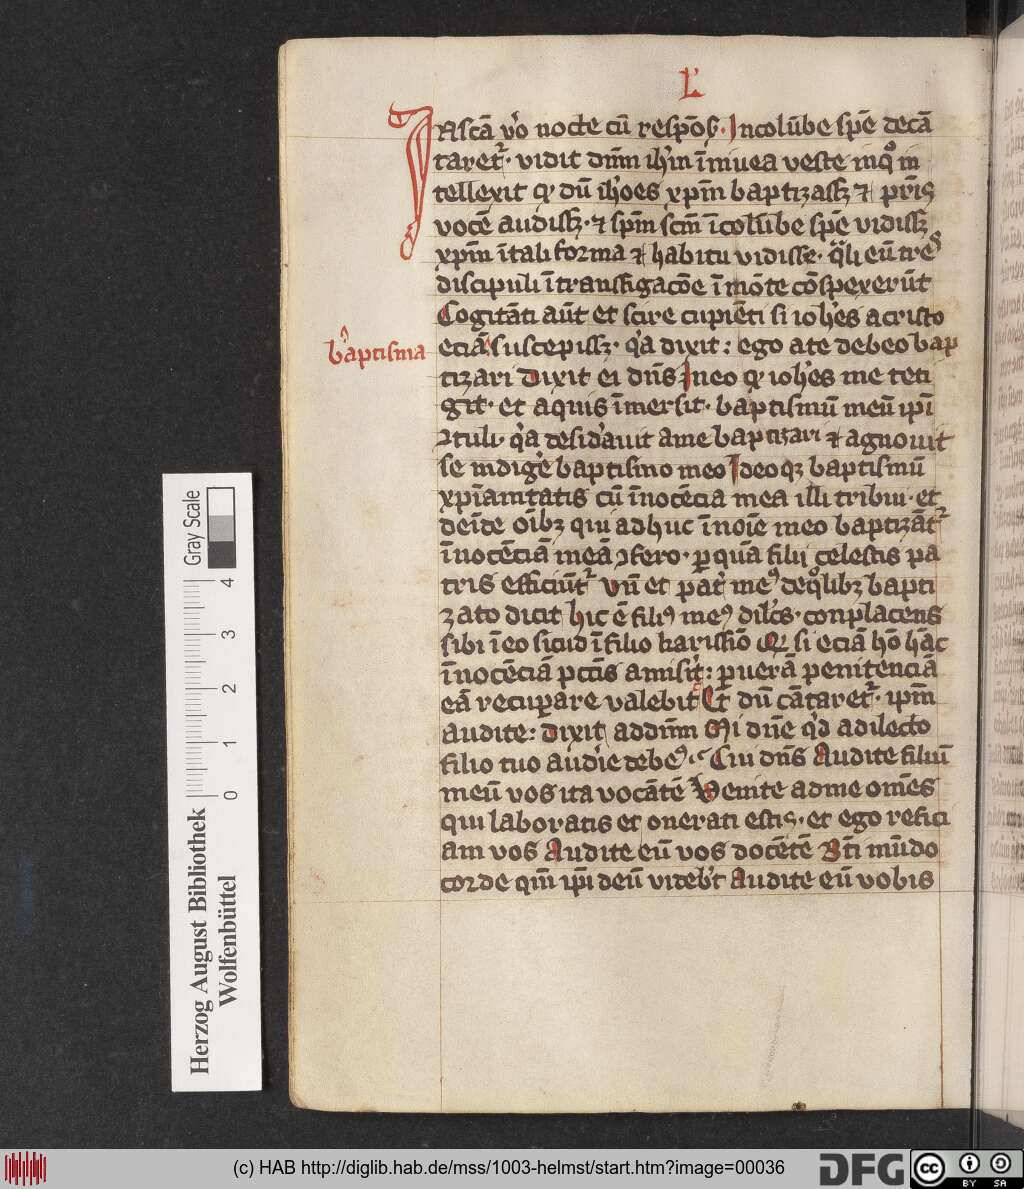 L'
IN scā v̓o nocte cū respōs̄. In colūbe spē decā
taretᷣ. vidit dn̄m ih̓m ī niuea veste in qͦ in
tellexit qꝫ dū ioh̓es xp̄m baptizassꝫ ⁊ pr̄is
vocē audissꝫ. ⁊ sp̄m scm̄ ī colūbe spē vidissꝫ
xp̄m ī tali forma ⁊ habitu vidisse. q̓li eū tres
discipuli ī transfigac̄oe ī mōte cōspexerūt
Cogitāti aūt et scire cupiēti si ioh̓es a cristo
b̓aptisma
eciā suscepissꝫ. q̓a dixit: ego a te debeo bap
tizari Dixit ei dn̄s In eo qꝫ ioh̓es me teti
git. et aquis īmersit. baptismū meū ip̄i
ꝯtuli. q̓a desid̓auit a me baptizari ⁊ agnouit
se indigē baptismo meo Ideoqꝫ baptismū
xp̄ianitatis cū īnocēcia mea illi tribui. et
deīde oībꝫ qui ad huc ī noīe meo baptizātᷣ
īnocēciā meā ꝯfero. ꝑ quā filii celestis pa
tris efficiūtᷣ Vn̄ et pat̓ meꝰ de qͦlibꝫ bapti
zato dicit hic ē filiꝰ meꝰ dilc̄s. conplacens
sibi ī eo sicud ī filio karissīo Qꝫ si eciā hō hāc
īnocēciā pctīs amisit̓: ꝑ uerā penitenciā
eā recuꝑare valebit Et dū cātaretᷣ. ip̄m
audite: dixit ad dn̄m Mi dn̄e qͥd a dilecto
filio tuo audir̓e debeꝰ. Cui dn̄s Audite filiū
meū vos ita vocātē Venite ad me om̄es
qui laboratis et onerati estis. et ego refici
am vos Audite eū vos docētē Bt̄i mūdo
corde qm̄ ip̄i deū videb̓t Audite eū vobis
Gray Scale
4
3
2
1
0
Herzog August Bibliothek
Wolfenbüttel
(c) HAB http://diglib.hab.de/mss/1003-helmst/start.htm?image=00036
DFG
cc
BY SA